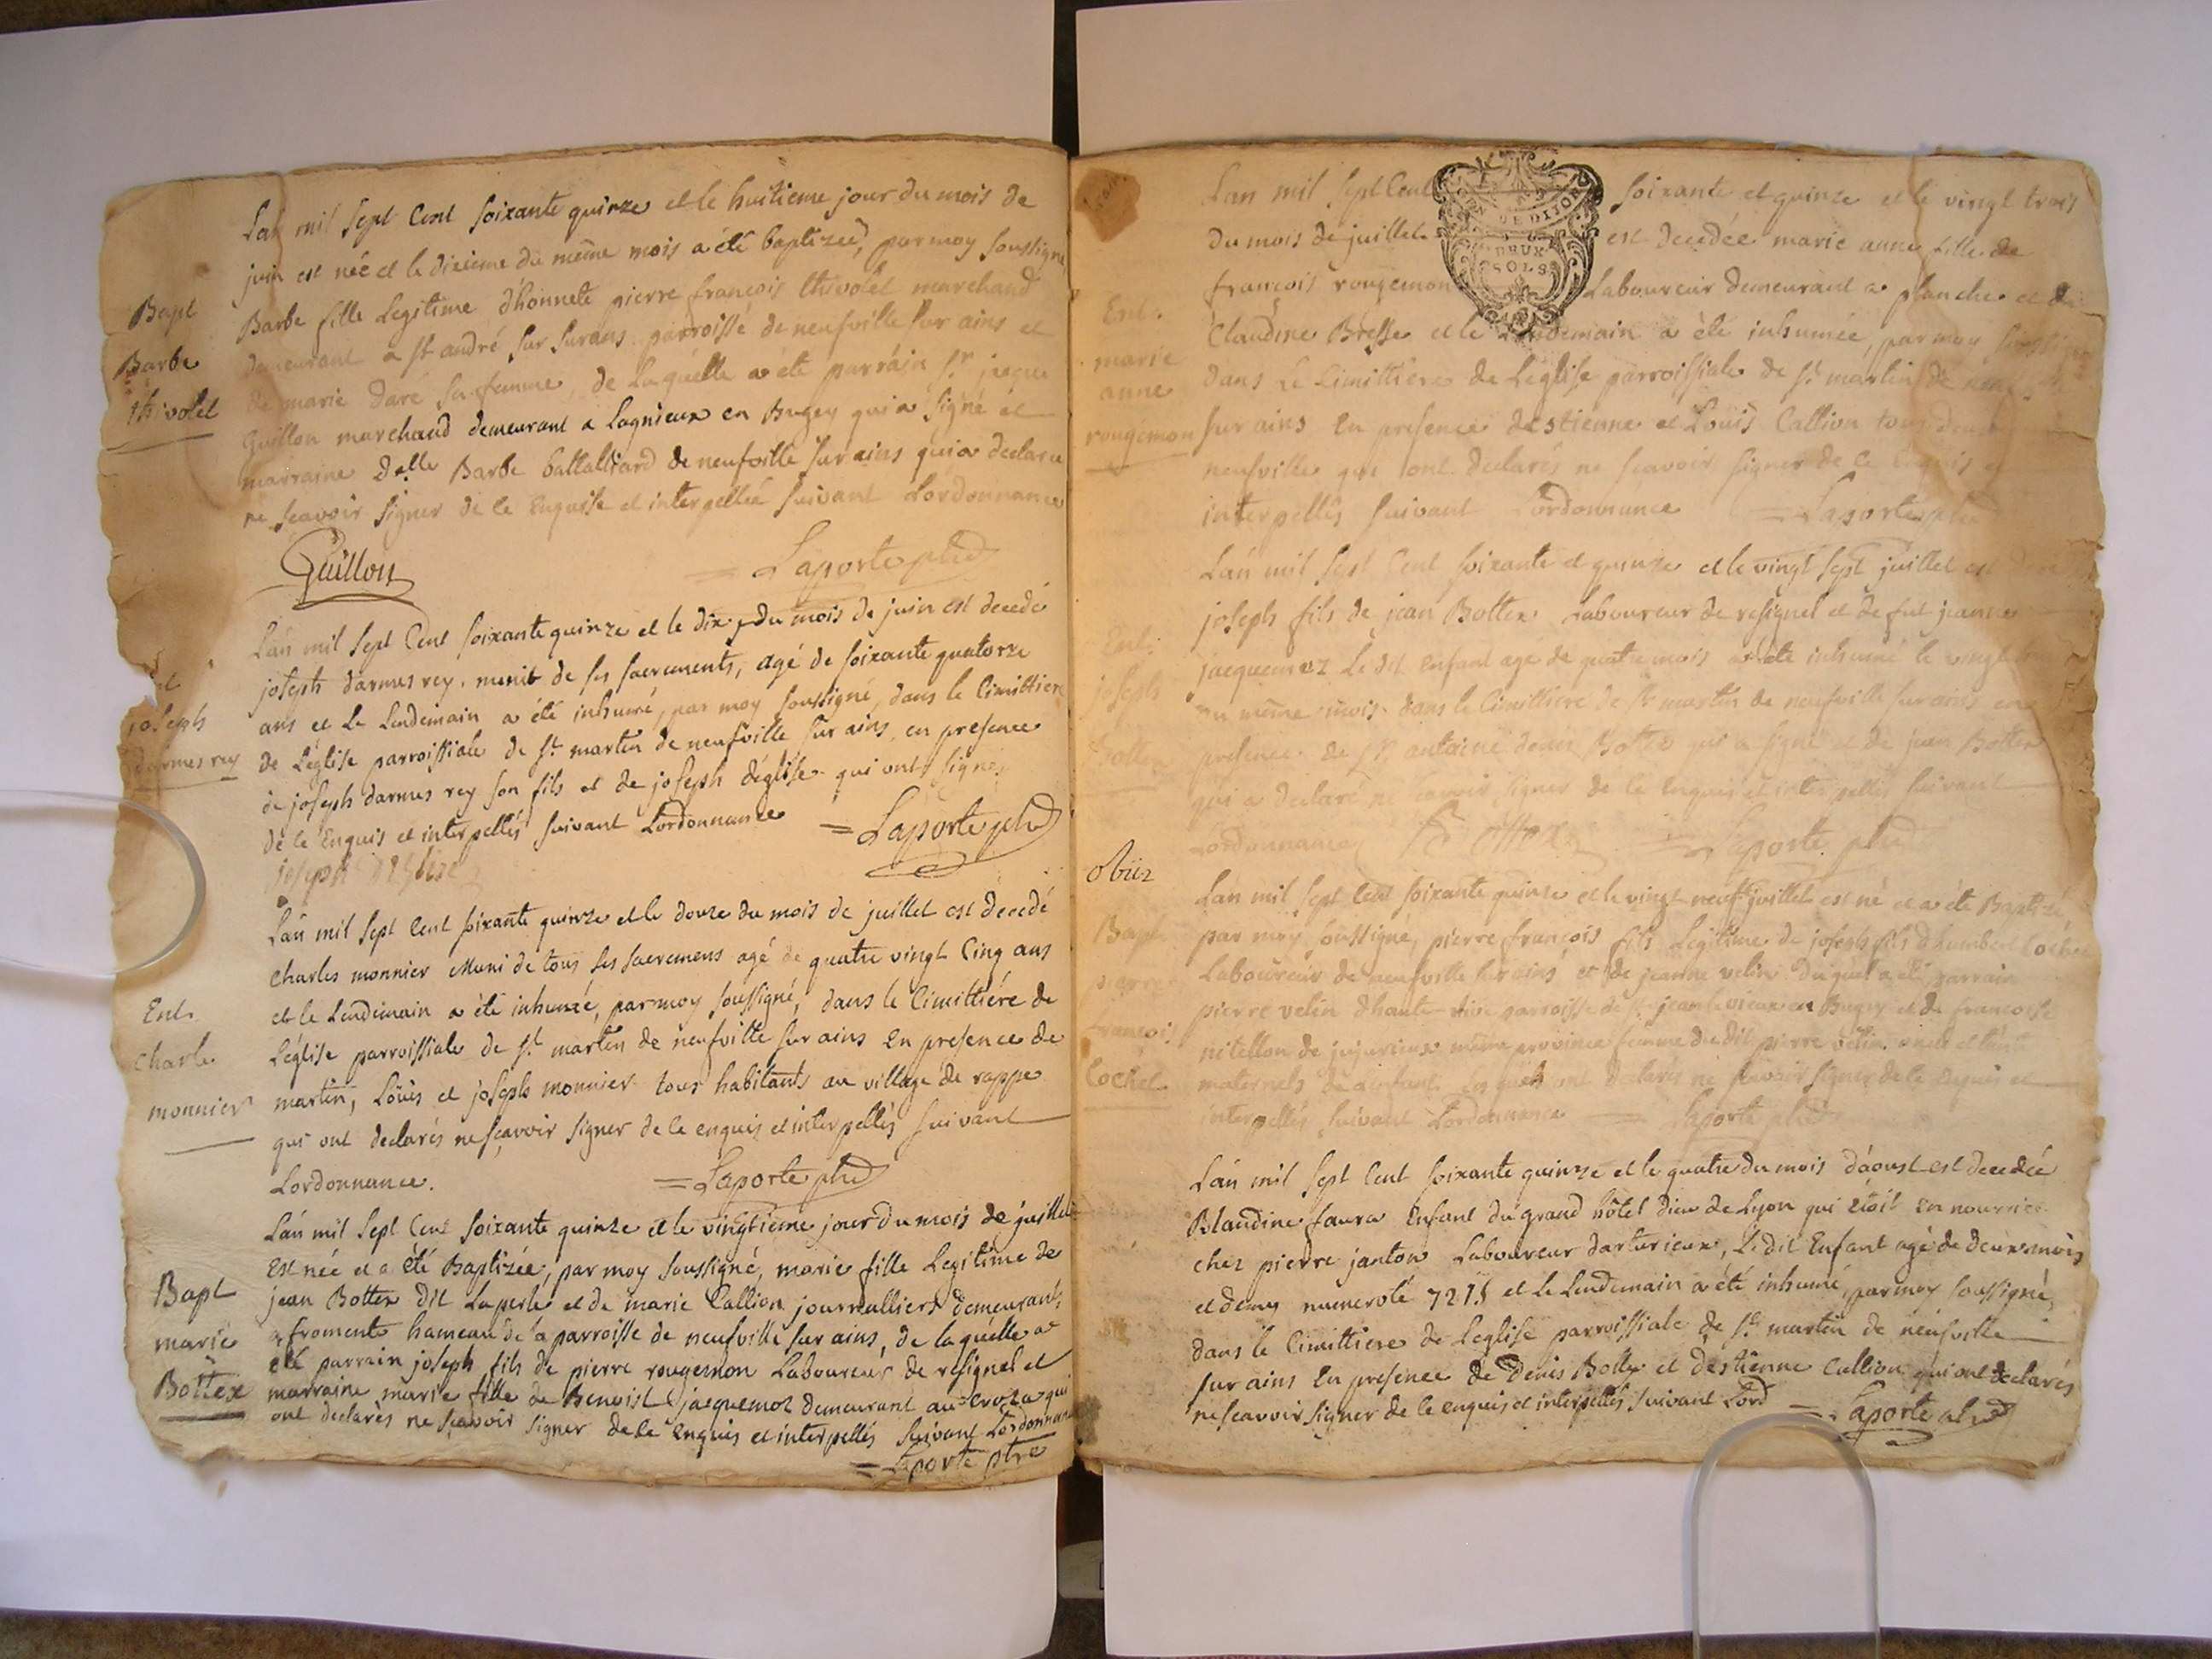 Lan mil sept Cent soixante quinze et le huitieme jour du mois de
juin est née et le dixieme du même mois a été baptizée, par moy soussigné
Bapt
Barbe fille Legitime d'honnete pierre françois thivolet marchand
demeurant a st andré sur surans parroisse de neufville sur ains et
Barbe
de marie daré sa femme, de laquelle a été parrain sr jaque
thivolet
Guillon marchand demeurant a Lagnieux en Bugey qui a signé et
marraine Delle Barbe battalliard de neufville sur ains qui a declaré
ne scavoir signer de ce Enquise et interpellée suivant Lordonnance
Guillon = Laporte ptre
Lan mil sept Cent soixante quinze et le dix du mois de juin est decedé
joseph darmes rey, munit de ses sacrements, agé de soixante quatorze
joseph
ans et Le Lendemain a été inhumé, par moy soussigné, dans le Cimittiere
darmes rey
de Léglise parroissiale de st martin de neufville sur ains, en presence
de joseph darmes rey son fils et de joseph déglise qui ont signé
de ce Enquis et interpellés suivant Lordonnance = Laporte ptre
joseph deglise
Lan mil sept Cent soixante quinze et le douze du mois de juillet est decedé
charles monnier Muni de tous ses sacremens agé de quatre vingt Cinq ans
Ent.
et le Lendemain a été inhumé, par moy soussigné, dans le Cimittiére de
charle
Léglise parroissiale de st martin de neufville sur ains En presence de
monnier
martin, Löuis et joseph monnier tous habitants au village de rappe
qui ont declarés ne sçavoir signer de ce enquis et interpellés suivant
Lordonnance. = Laporte ptre
Lan mil sept Cent soixante quinze et le vingtieme jour du mois de juillet
Est née et a été Baptizée, par moy soussigné, marie fille Legitime de
Bapt
jean Bottex dit Laperle et de marie Callion journalliers demeurants
marie
a fromente hameau de la parroisse de neufville sur ains, de laquelle a
été parrain joseph fils de pierre rougemon Laboureur de resignel et
Bottex
marraine marie fille de Benoist jaquemoz demeurant au croza qui
ont declarés ne sçavoir signer de ce enquis et interpellés suivant Lordonnance
= Laporte ptre
Lan mil sept Cent soixante et quinze et le vingt trois
DE DIJON
DEUX
SOLS
du mois de juillet est decedée marie anne fille de
françois rougemon Laboureur demeurant a planche et de
Ent.
Claudine Bresse et le Lendemain a été inhumée, par moy
marie
dans Le Cimittiere de Léglise parroissiale de st martin de
anne
rougemon
sur ains En presence destienne et Louis Callion tous
neufville qui ont declarés ne scavoir signer de ce Enquis
interpellés suivant Lordonnance = Laporte ptre
Lan mil sept Cent soixante et quinze et le vingt sept juillet est
joseph fils de jean Bottex Laboureur de resignel et de fut jeanne
Ent.
jacquemoz Le dit enfant agé de quatre mois a été inhumé le vingt
joseph
du même mois dans le Cimittiere de st martin de neufville sur ains en
presence de sr antoine denis Bottex qui a signé et de jean Bottex
qui a declaré ne scavoir signer de ce Enquis et interpellés suivant
Lordonnance Bottex = Laporte ptre
obiiz
Lan mil sept Cent soixante quinze et le vingt neuf juillet est né et a été Baptizé,
Bapt
par moy soussigné, pierre françois fils Legitime de joseph fils dhumbert Cochet
pierre
Laboureur de neufville sur ains et de jeanne velin duquel a été parrain
pierre velin dhaute rive parroisse de st jean le vieux en Bugey et de francoise
francois
nitellon de jujurieux même province femme du dit pierre velin oncle et tante
Cochet
maternels de lenfant Lesquels ont declarés ne scavoir signer de ce enquis et
interpellés suivant Lordonnance = Laporte ptre
Lan mil sept Cent soixante quinze et le quatre du mois d'aoust est decedée
Blandine faure Enfant du grand hôtel dieu de Lyon qui étoit En nourrice
chez pierre janton Laboureur darturieux, Le dit Enfant agé de deux mois
et demy numeroté 7215 et le Lendemain a été inhumé, par moy soussigné,
dans le Cimittiere de Leglise parroissiale de st martin de néufville
sur ains En presence de Denis Bottex et destienne Callion qui ont declarés
ne scavoir signer de ce enquis et interpellés suivant Lord = Laporte ptre